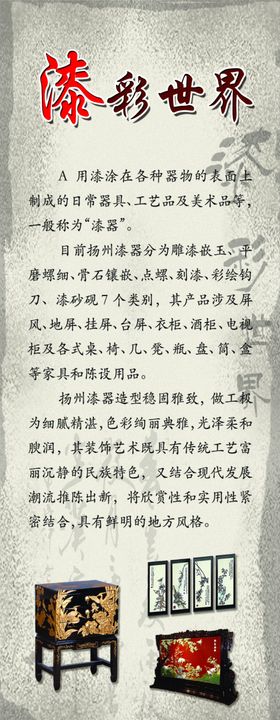 漆彩世界
A 用漆涂在各种器物的表面上
制成的日常器具、工艺品及美术品等，
一般称为“漆器”。
目前扬州漆器分为雕漆嵌玉、平
磨螺细、骨石镶嵌、点螺、刻漆、彩绘钩
刀、漆砂砚7个类别，其产品涉及屏
风、地屏、挂屏、台屏、衣柜、酒柜、电视
柜及各式桌、椅、几、凳、瓶、盘、筒、盒
等家具和陈设用品。
扬州漆器造型稳固雅致，做工极
为细腻精湛，色彩绚丽典雅，光泽柔和
腴润，其装饰艺术既具有传统工艺富
丽沉静的民族特色，又结合现代发展
潮流推陈出新，将欣赏性和实用性紧
密结合，具有鲜明的地方风格。
漆彩世界